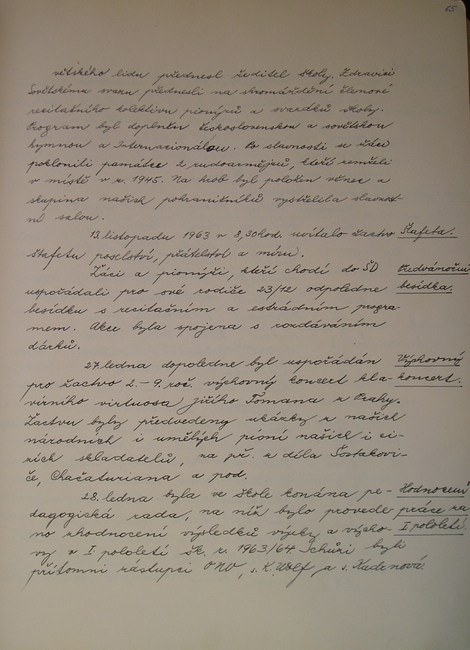 65
větského lidu přednesl ředitel školy. Zdravici
Sovětskému svazu přednesli na shromáždění členové
recitačního kolektivu pionýrů a svazáků školy.
Program byl doplněn československou a sovětskou
hymnou a Internacionálou. Po slavnosti se žáci
poklonili památce rudoarmějců, kteří zemřeli
v místě v r. 1945. Na hrob byl položen věnec a
skupina našich pohraničníků vystřelila slavnost-
ní salvu.
13. listopadu 1963 v 8,30 hod. uvítalo žactvo Štafeta.
štafetu poselství, přátelství a míru.
Žáci a pionýři, kteří chodí do ŠD předvánoční
uspořádali pro své rodiče 23/12 odpoledne besídka.
besídku s recitačním a estrádním progra-
mem. Akce byla spojena s rozdáváním
dárků.
27. ledna dopoledne byl uspořádán Výchovný
pro žactvo 2.-9. roč. výchovný koncert kla- koncert.
vírního virtuosa Jiřího Tomana z Prahy.
Žactvu byly předvedeny ukázky z našich
národních i umělých písní našich i ci-
zích skladatelů, na př. z díla Šostakovi-
če, Chačaturiana a pod.
28. ledna byla ve škole konána pe- Hodnocení
dagogická rada, na níž bylo provede- práce za
no zhodnocení výsledků výuky a výcho- I. pololetí.
vy v I. pololetí šk. r. 1963/64. Schůzi byli
přítomni zástupci ONV, s. K. Wolf a s. Kudenová.